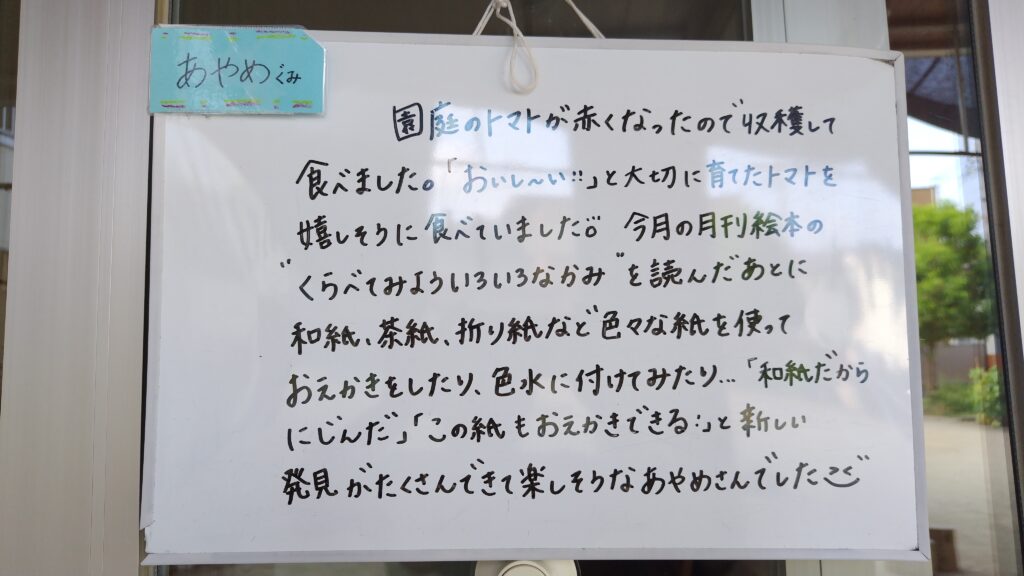 あやめぐみ
園庭のトマトが赤くなったので収穫して
食べました。「おいし〜い!!」と大切に育てたトマトを
嬉しそうに食べていました。 今月の月刊絵本の
"くらべてみよういろいろなかみ"を読んだあとに
和紙、茶紙、折り紙など色々な紙を使って
おえかきをしたり、色水に付けてみたり…「和紙だから
にじんだ」「この紙もおえかきできる!」と新しい
発見がたくさんできて楽しそうなあやめさんでした